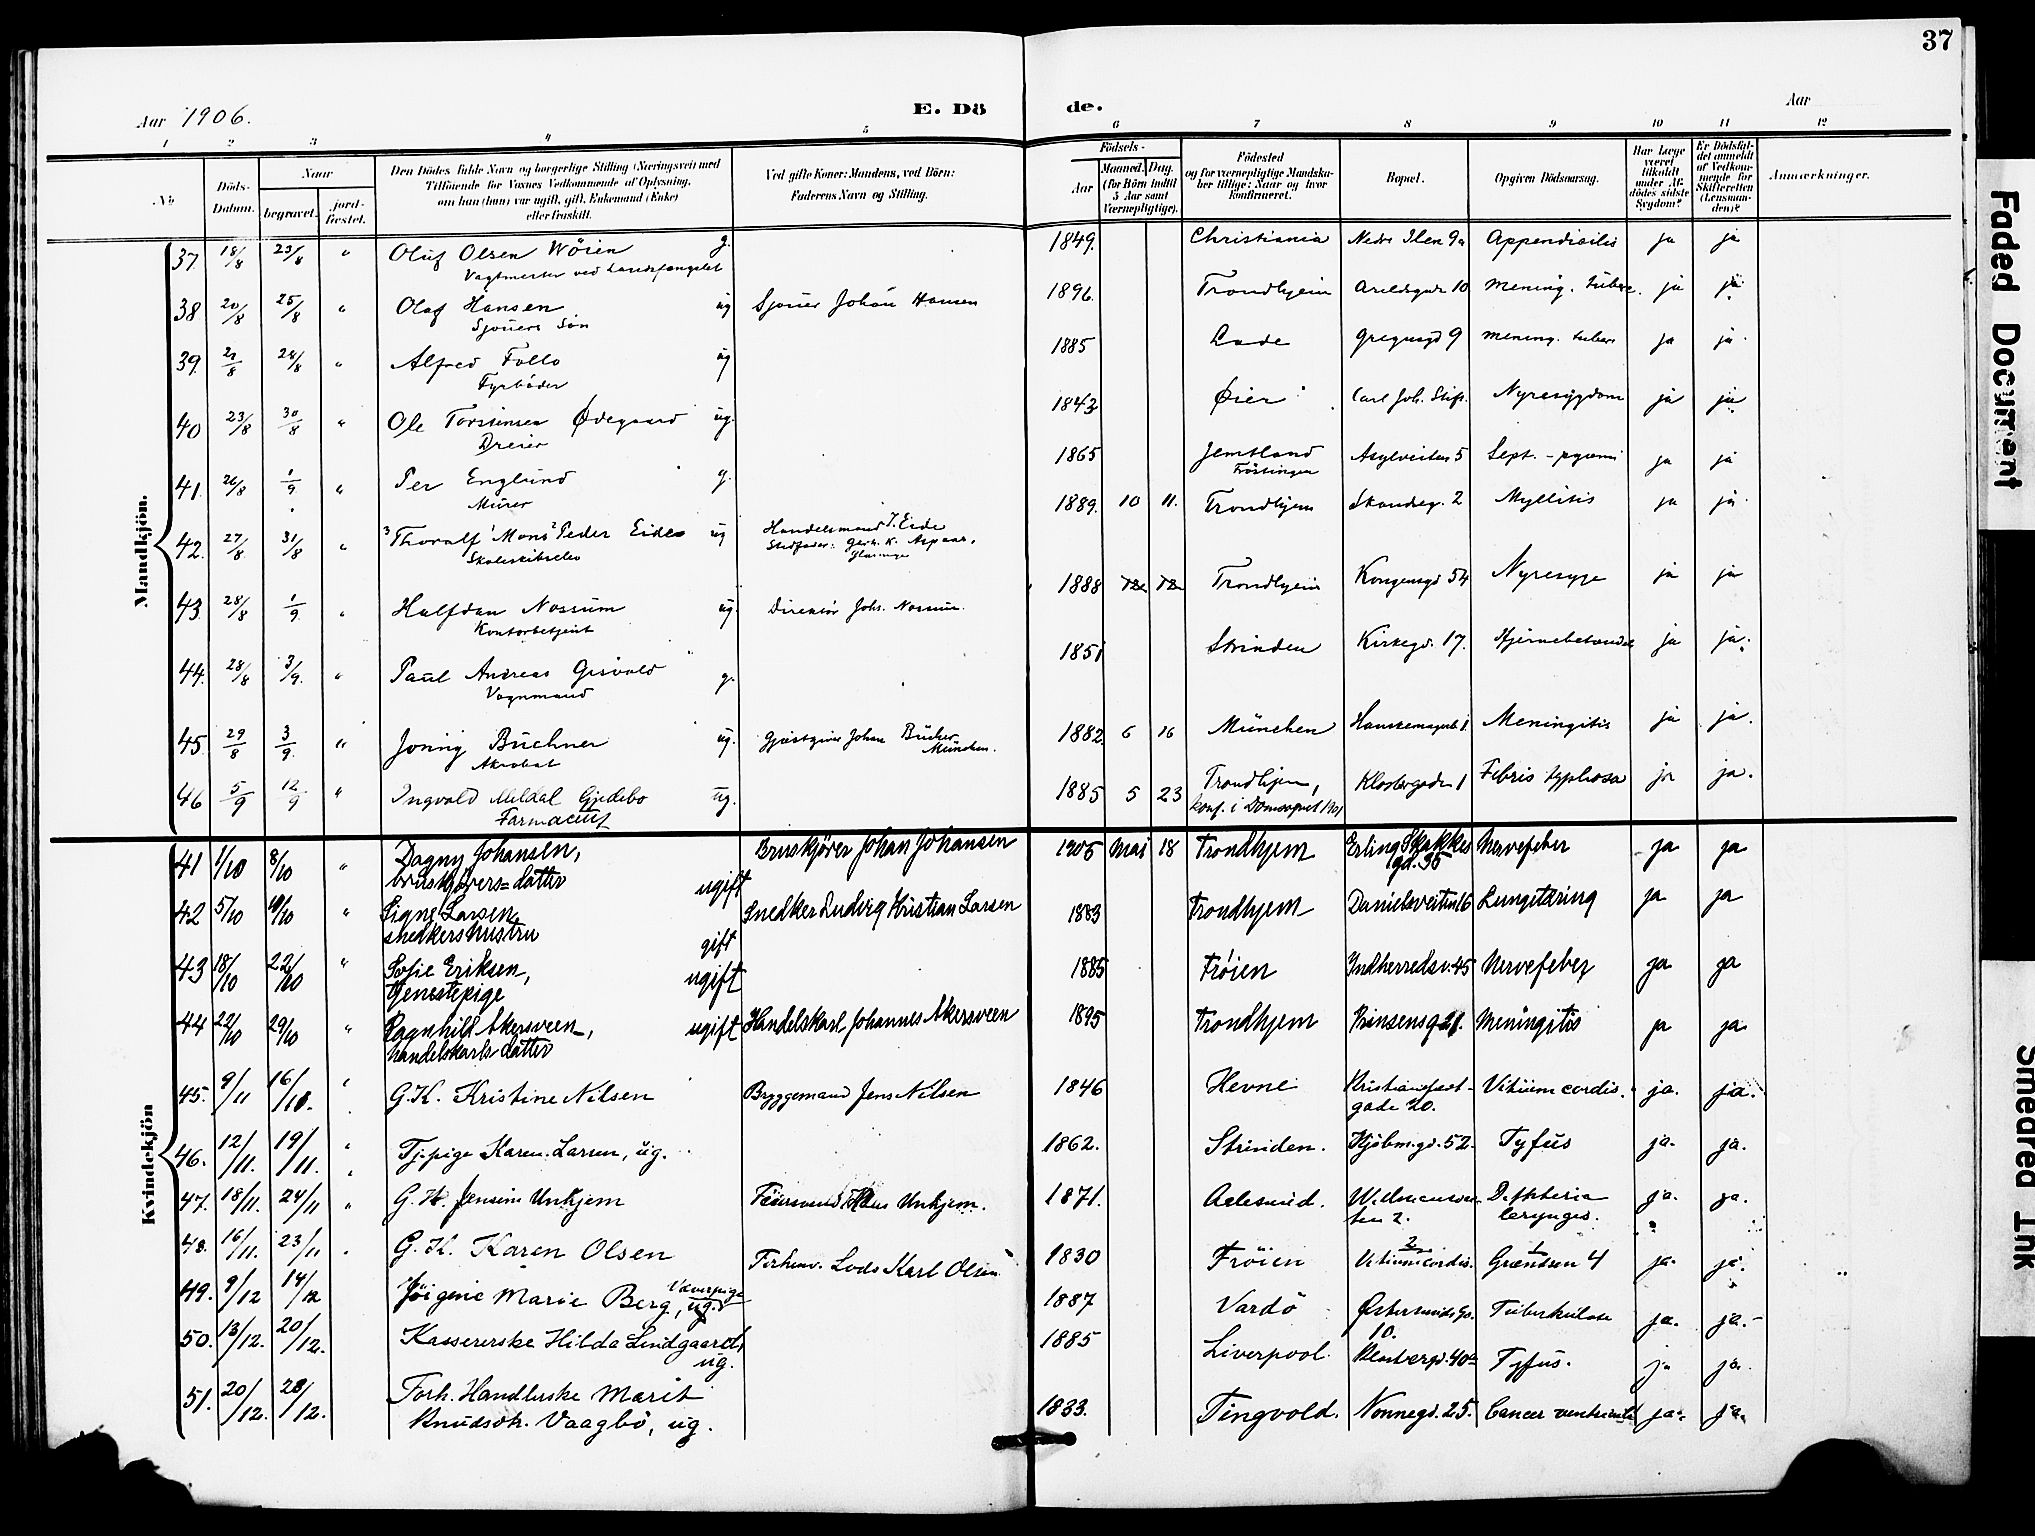 37
Aar 1906.
E. Dö
de.
Aar
1 2 3 4 5 6 7 8 9 10 11 12
No
Döds-Datum.
Naar
begravet.
jord-fæstet.
Den Dödes fulde Navn og borgerlige Stilling (Næringsvei) med
Tilföiende for Voxnes Vedkommende af Oplysning,
om han (hun) var ugift, gift, Enkemand (Enke)
eller fraskilt.
Ved gifte Koner: Mandens, ved Börn:
Faderens Navn og Stilling.
Födsels-
Aar
Maaned. Dag.
(for Börn indtil
5 Aar samt
Værnepligtige).
Födested
og for værnepligtige Mandska-
ber tillige: Naar og hvor
konfirmeret.
Bopæl.
Opgiven Dödsaarsag.
Har Læge
været
tilkaldt
under Af-
dödes sidste
Sygdom?
Er Dödsfal-
det anmeldt
af Vedkom-
mende for
Skifteretten
(Lensman-
den)?
Anmærkninger.
Mandkjön.
37. 18/8 23/8 " Oluf Olsen Wöien g. 1849. Christiania Nedre Ilen 9a Appendicitis ja ja
Vagtmester ved Landsfængslet
38 20/8 25/8 " Olaf Hansen ug Sjouer Johan Hansen 1896. Trondhjem 10 Mening. tuberc. ja ja
Sjouers Søn
39. 28/8 " Alfred Follo ug 1885 Lade 9 mening. tuberc ja ja.
Fyrbøder
40 23/8 30/8 " Ole Torstensen Ødegaard ug. 1843 Øier Carl Joh. Stift. Nyresygdom ja ja
Dreier
41. 26/8 1/9 " Per Englund g. 1865 Jemtland Asylveiten 5 Sept.-pyæmi ja ja
Murer
42. 27/8 31/8 " 3 Thoralf 1 Mons 2 Peder Eide ug Handelsmand J. Eide 1889. 10 11. Trondhjem 2 Myllitis ja ja
Stedfader:
43. 28/8 1/9 " Halfdan Nossum ug. Direktör Johs. Nossum. 1888 Trondhjem Kongensgd 54 Nyresyge ja ja
Kontorbetjent
44. 28/8 3/9. " Paul Andreas g. 1851 Strinden Kirkegd. 17. ja ja.
Vognmand
45. 29/8 3/9. " Büchner ug. Gjæstgiver Johan München. 1882. 6 16 München Meningitis ja ja.
Akrobat
46 5/9 12/9 " Ingvald Meldal Gjedebo ug. 1885 5 23 Trondhjem, Klostergaden 1 Febris typhosa ja ja.
Farmaceut
konf. i Domsognet
Kvindekjön
41 1/10 8/10 " Dagny Johansen, ugift Bruskjører Johan Johansen 1905 Mai 18 Trondhjem Erling Skakkes gd. 35 Nervefeber ja ja
bruskjørers=datter
42 5/10 10/10 " Signe Larsen, gift Snedker Ludvig Kristian Larsen 1883 Trondhjem Danielsveiten 16 Lungetæring ja ja
snedkershustru
43 18/10 22/10 " Sofie Eriksen, ugift 1885 Frøien Indherredsv. 45 Nervefeber ja ja
tjenestepige
44 22/10 29/10 " Ragnhild Akersveen, ugift Handelskarl Johannes Akersveen 1895 Trondhjem Prinsensg 21. Meningitis ja ja
handelskarls datter
45. 9/11 16/10. " G.K. Kristine Nilsen Bryggemand Jens Nilsen 1846 Hevne Kristiansfeldt- Vitium cordis. ja. ja.
gade 20.
46. 12/11. 19/11. " Tj.pige Karen Larsen, ug. 1862. Strinden. Kjøbm.gd. 52. Tyfus ja. ja.
47. 18/11. 24/11 " G. K. Jensine Unhjem Feiersvend Hans Unhjem. 1871. Aalesund. Difhteria ja. ja.
ten 2. laryngis.
48. 16/11. 23/11 " G. K. Karen Olsen Forhenv. Lods Karl Olsen 1830 Frøien 2 Vitium cordis. 1 Grændsen 4 ja. ja.
49. 9/12 14/12 Jörgine Marie Berg, Væverpige ug. 1887 Vardö Østersundsgd. Tuberkulose ja. ja.-
10.
50. 13/12. 20/12. Kassererske Hilda Lindgaard, ug. 1885 Liverpool Klostergd. 40a Tyfus. ja ja.
51. 20/12. 28/12. Forh. Handlerske Marit 1833. Tingvold. Nonnegd. 25. Cancer ventriculi ja. ja.
Knudsdt. Vaagbö, ug.
Faded Document
Smeared Ink